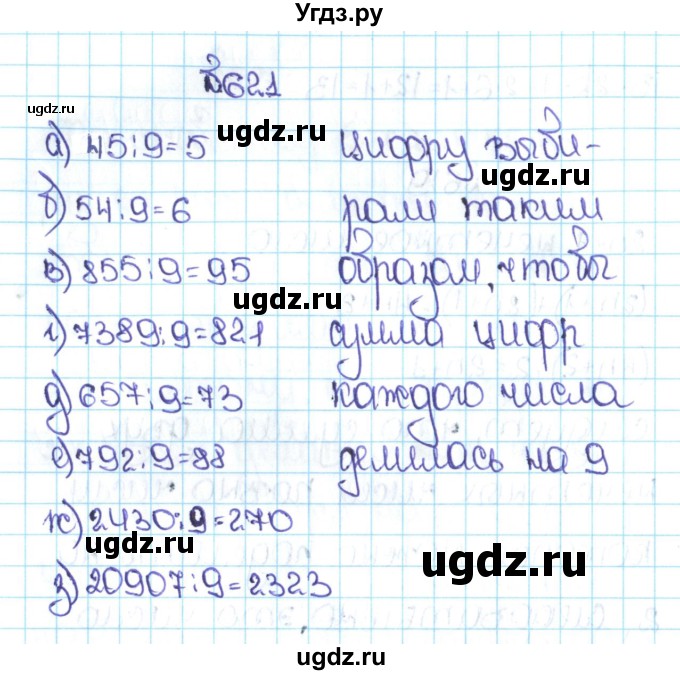 Угдз.ру
№621
ugdz.ru
а) 45:9=5
ugdz.ru
цифру выби-
ugdz.ru
б) 54:9=6
рали таким
в) 855:9=95
образом, чтобы
ugdz.ru
г) 7389:9=821
сумма цифр
д) 657:9=73
каждого числа
е) 792:9=88
делилась на 9
ж) 2430:9=270
ugdz.ru
ugdz.ru
з) 20907:9=2323
ugdz.ru